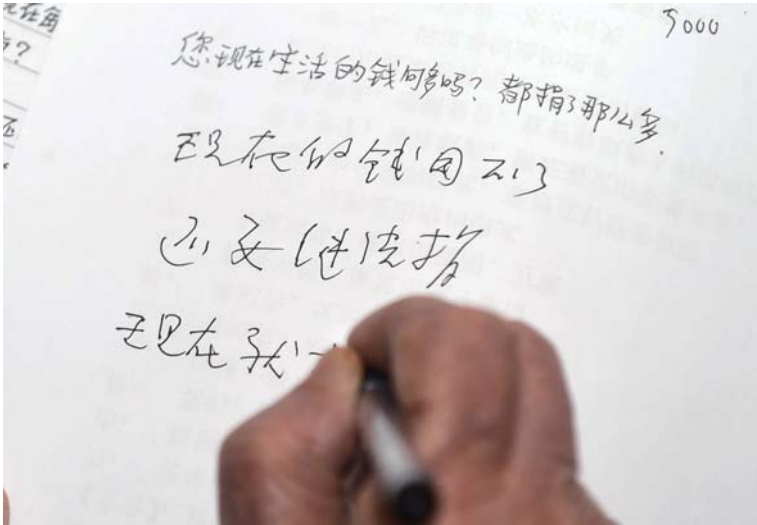 5000
您现在生活的钱够吗？都捐了那么多.
现在的钱用不了
还要继续捐
现在我一
在角
？